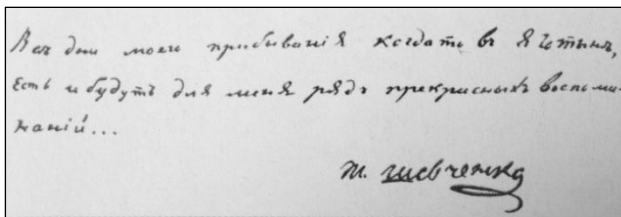 Все дни моего прибыванія когдато въ Яготинѣ,
Есть и будутъ для меня рядъ прекрасныхъ воспоми-
наній...
Т. Шевченко